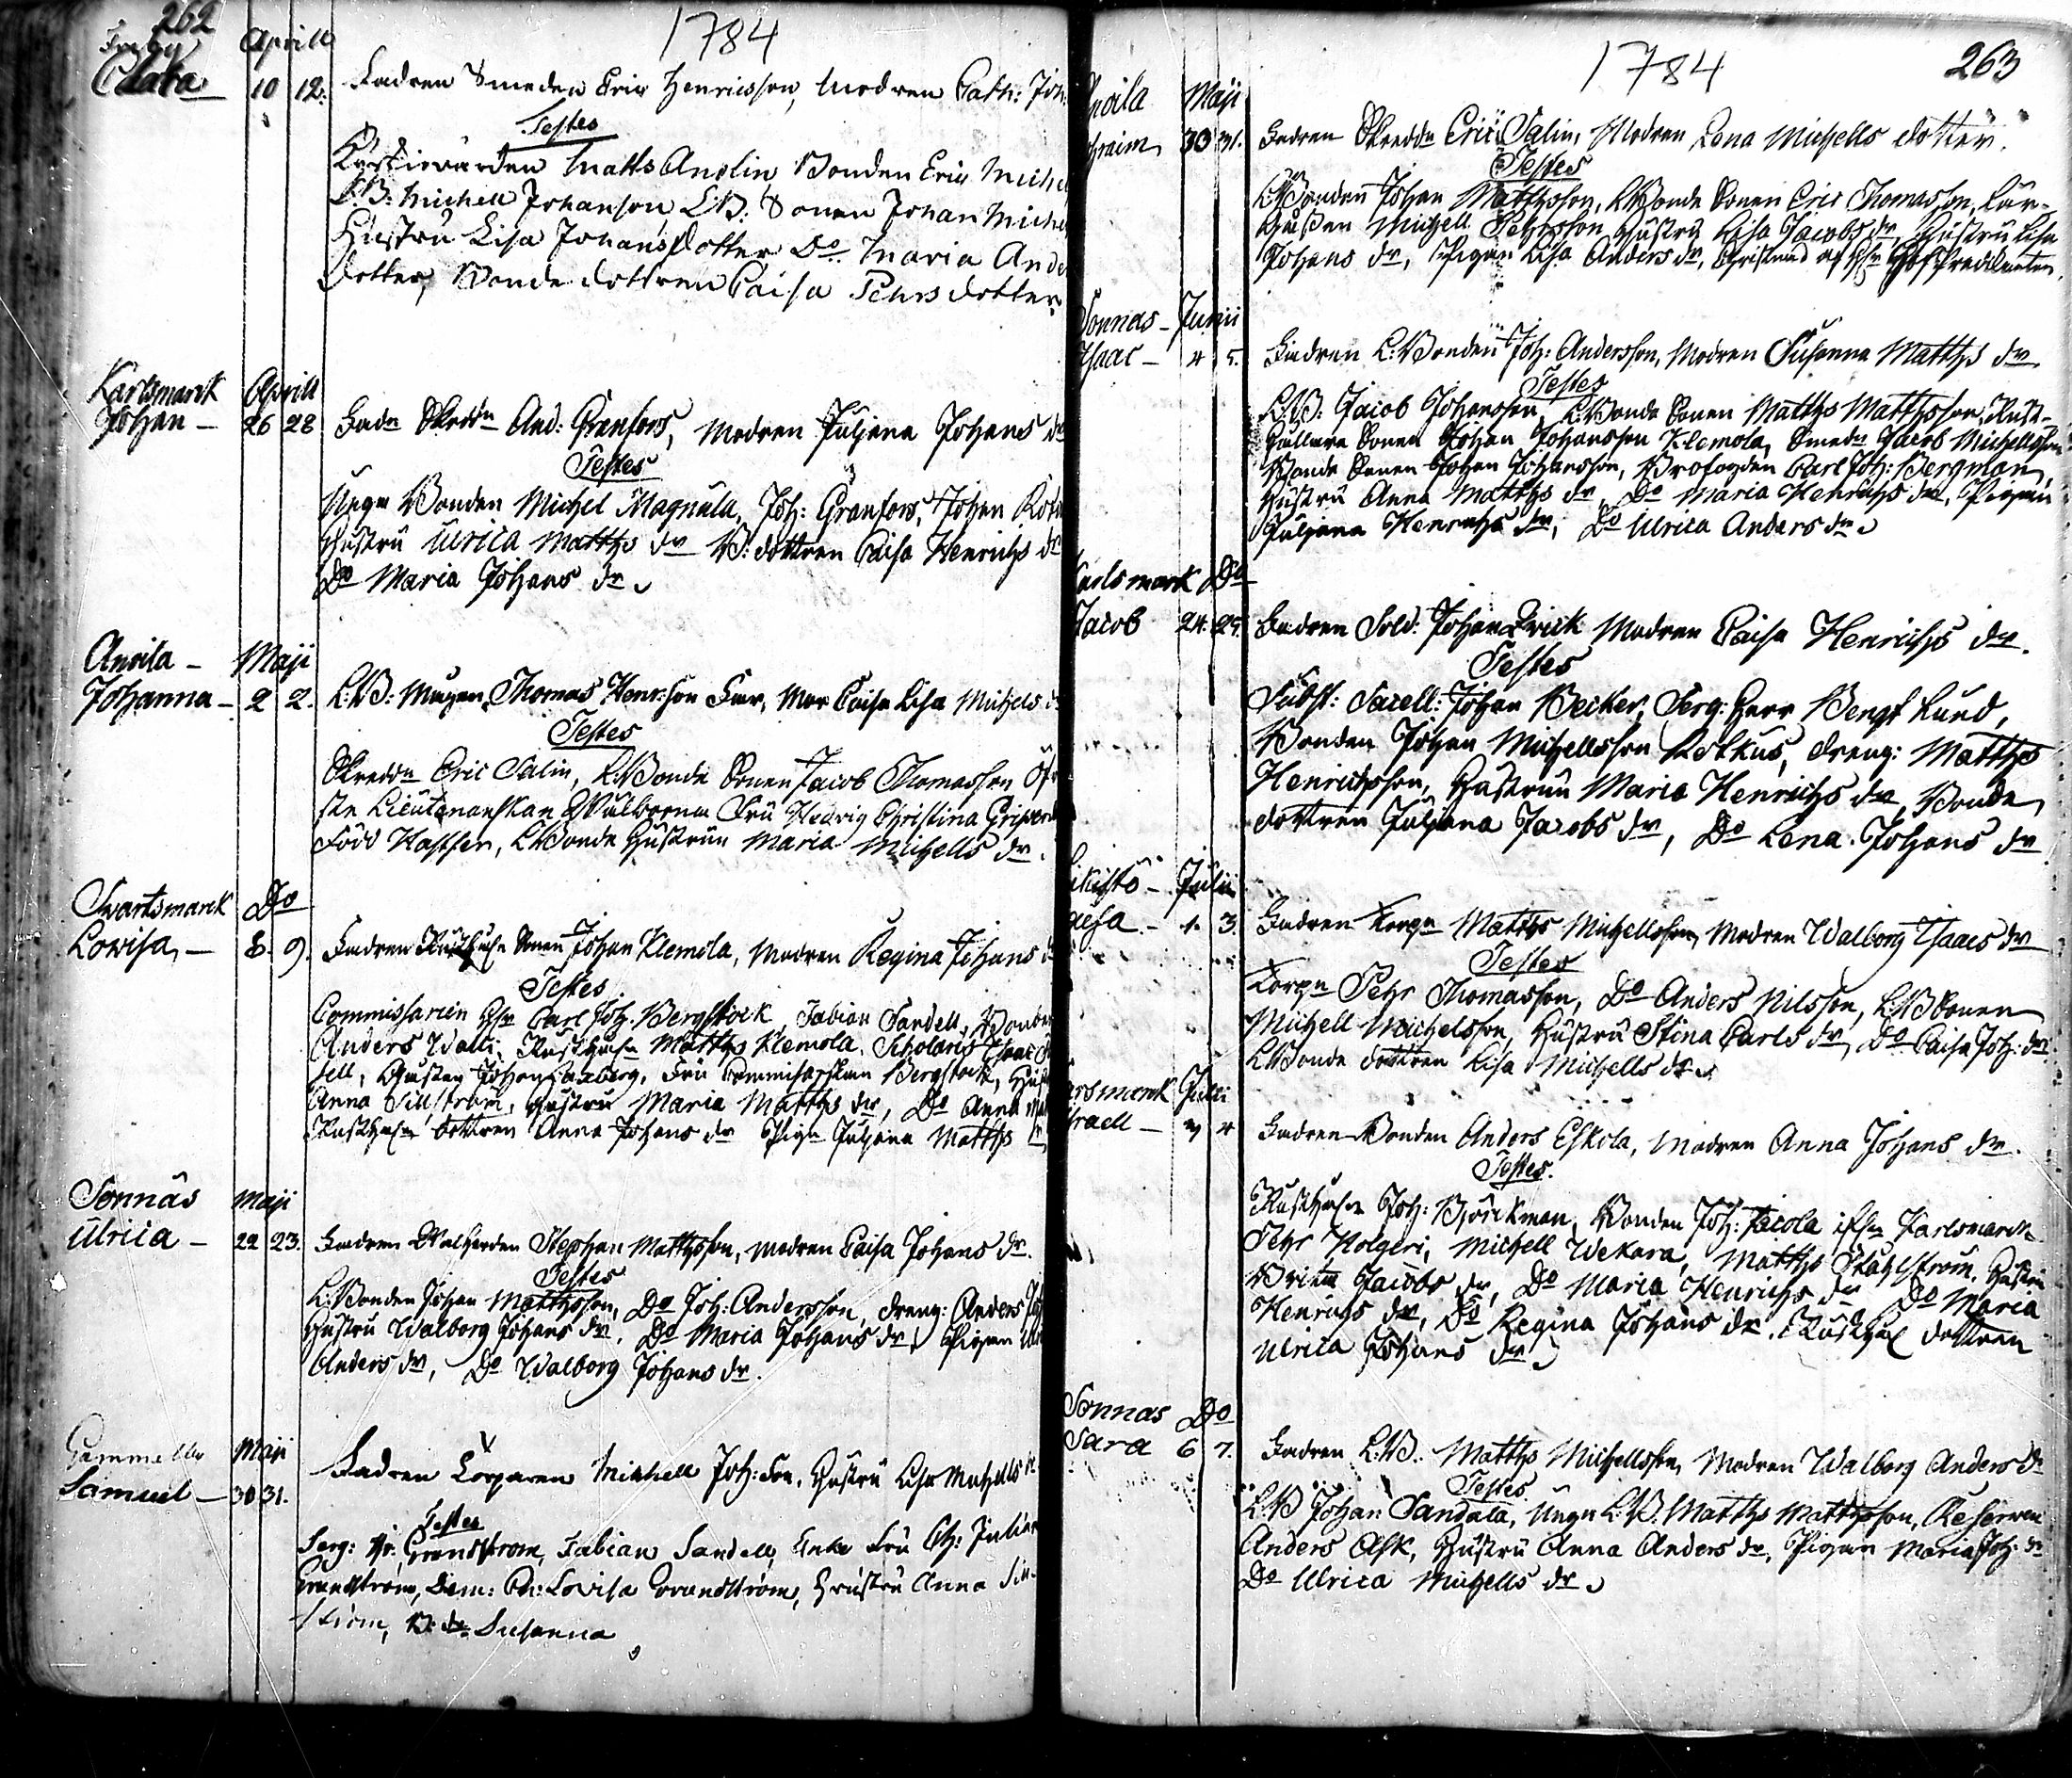 262
1784
Aprill
Clara 10 12. Fadren Smeden Eric Henricsson, Modren Cath: Joh:
Testes
Kyrkiowärden Matts Anolin Bonden Eric Michel
L.B: Michell Johanson L:B: Sonen Johan Michel
Hustru Lisa Johans Dotter Do Maria Ande
dotter, Bonde dottren Caisa Pehrs dotter
Karlsmarck Aprill
Johan – 26 28 Fadn Skreddn And: Granfors, Modren Juljana Johans dr
Testes
Unga Bonden Michel Magnula, Joh: Granfors, Johan
Hustru Ulrica Matths dr B: dottren Caisa Henrichs dr
Do Maria Johans dr
Anoila – Maji
Johanna – 2 2. L:B: Mågen Thomas Henr:son Far, Mor Caisa Lisa Michels d
Testes
Skreddn Eric Salin, L:Bonde Sonen Jacob Thomasson Öf
ste Lieutenantskan Wälborna Fru Hedvig Christina Gripen
Född Hästher, LBonde Hustrun Maria Michells dr.
Svartsmarck Do
Lovisa, – 8. 9. Fadren Rusth Sonen Johan Klemola, Modren Regina Johans d
Testes
Commissarien Hr Carl Joh: Bergstock, Fabian Sandell, Bonden
Anders Walli, Rusth Matths Klemola, Scholaris Isaac
sell, Gustav Johan Saxberg, Fru Commissarskan Bergstock, Hust
Anna Sillström, Hustru Maria Matths dr, Do Anna
Rusth dottren Anna Johans dr Pign Juljana Matths dr
Sonnäs Maji
Ulrica – 22 23. Fadren Walherden Stephan Matthsson, Modren Caisa Johans dr.
Testes
L:Bonden Johan Matthsson, Do Joh: Andersson, dreng: Anders
Hustru Walborg Johans dr, Do Maria Johans dr, Pigan
Anders dr, Do Walborg Johans dr.
Gammelby Maji
Samuel – 30 31. Fadren Torparen Michell Joh:son, Hustru Lisa Michells dr
Testes
Serg: Hr: Grandstrom, Fabian Sandell, Enke Fru Ch: Julian
Grandström, Dem: Chr: Lovisa Grandström, Hustru Anna Sill-
ström, B: dr Susanna
263
1784
Anoila Maji
Ephraim 30 31. Fadren Skreddn Eric Salin, Modren Lena Michells dotter.
Testes
LBonden Johan Matthsson, LBonde Sonen Eric Thomasson, Lär-
Michell Pehrsson, Hustru Lisa Jacobs dr, Hustru Lisa
Johans dr, Pigan Lisa Anders dr, Christnad af Hr
Sonnas – Junii
Isaac – 4 5. Fadren L:Bonden Joh: Andersson, Modren Susanna Matths dr
Testes
L:B: Jacob Johansson, LBonde Sonen Matths Matthsson, Rust-
hållare Sonen Johan Johansson Klemola, Smedn Jacob Michellsson
Bonde Sonen Johan Johansson, Brofogden Carl Joh: Bergman,
Hustru Anna Matths dr, Do Maria Henrichs dr, Pigan
Juljana Henrichs dr, Do Ulrica Anders dr
Karlsmark Do
Jacob 24. 25. Fadren Sold: Johan Qvick Modren Caisa Henrichs dr.
Testes
Subst: Sacell: Johan Becker, Serg: Herr Bengt Lund,
Bonden Johan Michellsson Rolkus, dreng: Matths
Henrichsson, Hustrun Maria Henrichs dr, Bonde
dottren Juljana Jacobs dr, Do Lena Johans dr
Julii
Caisa – 1. 3. Fadren Torpn Matths Michellsson, Modren Walborg Isaacs dr
Testes
Torpn Pehr Thomasson, Do Anders Nilsson, L:B Sonen
Michell Michelsson, Hustru Stina Carls dr, Do Caisa Joh: dr
LBonde dottren Lisa Michells dr
Karsmarck Julii
Israell – 4 Fadren Bonden Anders Eskola, Modren Anna Johans dr.
Testes.
Rusth Joh: Björckman, Bonden Joh: Jacola ifrn Karlsmarck
Pehr Holgeri, Michell Wekara, Matths Stahlström, Hustru
Britta Jacobs dr, Do Maria Henrichs dr Do Maria
Henrichs dr, Do Regina Johans dr, Rusth dottren
Ulrica Johans dr
Sonnas Do
Sara 6 7. Fadren L:B. Matths Michellsson, Modren Walborg Anders dr
Testes
L:B Johan Sandala, Unga L:B. Matths Matthsson, Reserven
Anders Ask, Hustru Anna Anders dr, Pigan Maria Joh: dr
Do Ulrica Michells dr